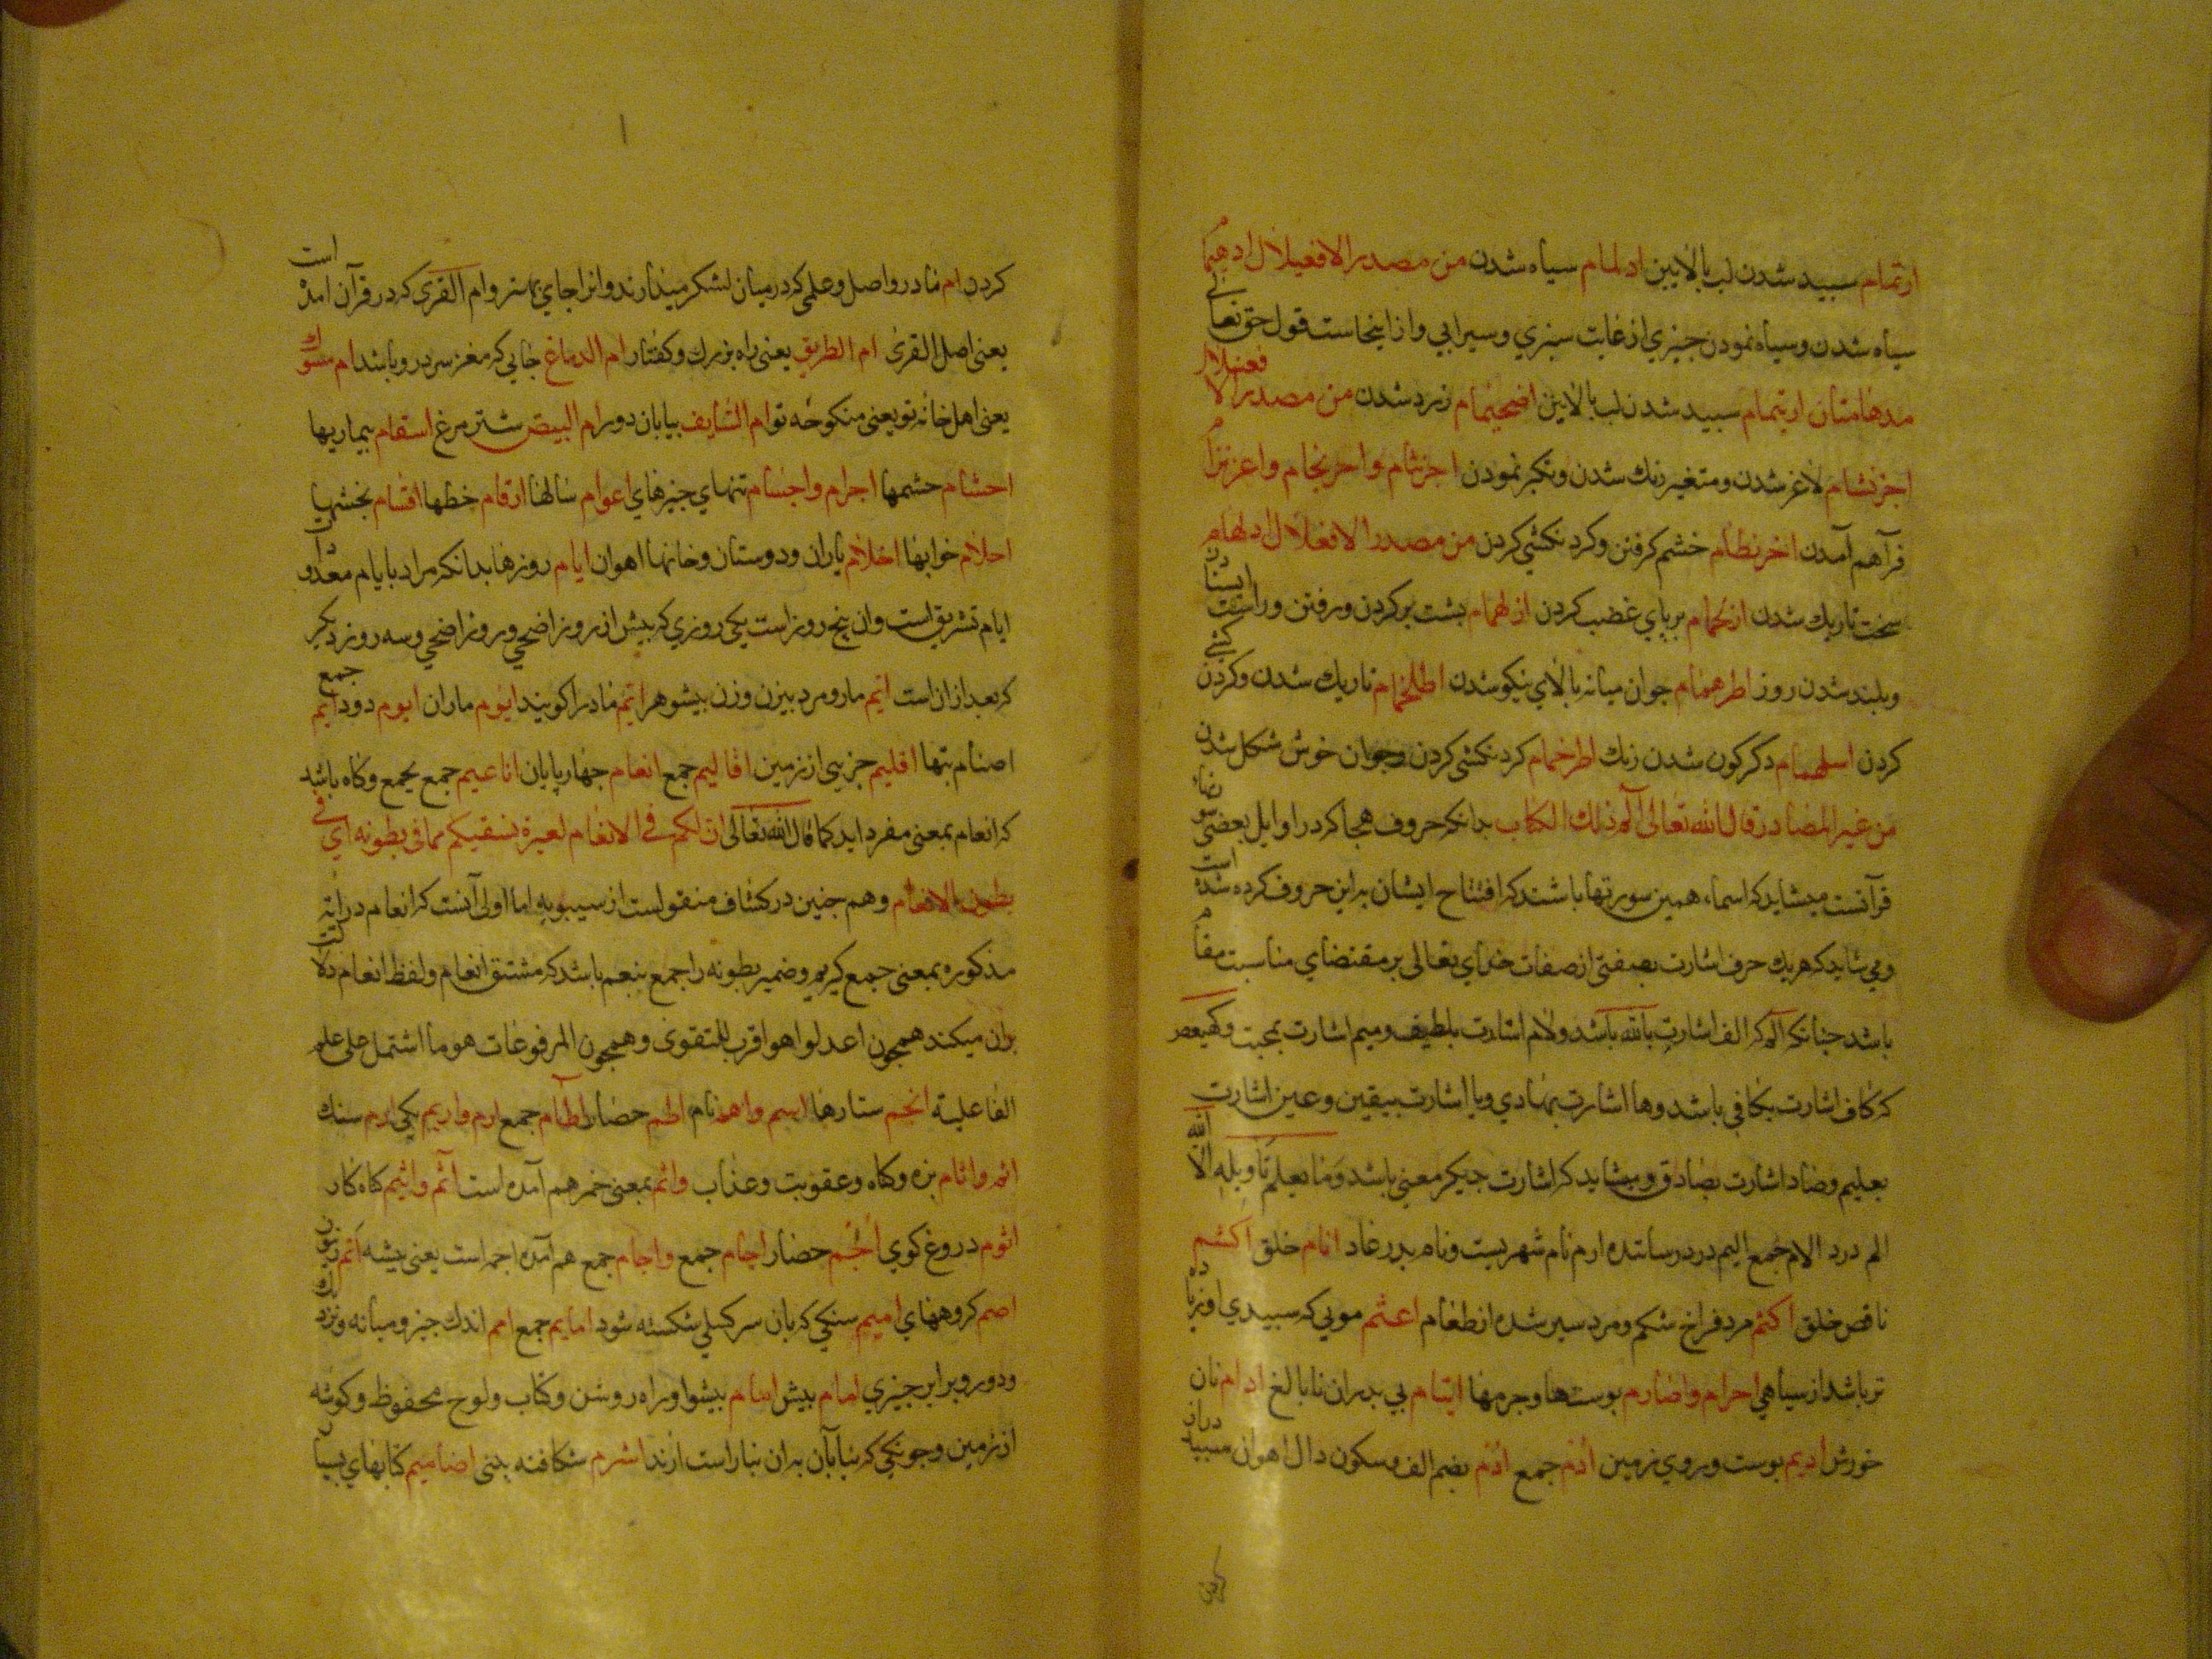 ارتمام سبید شدن لب بالایین ادلمام سیاه شدن من مصدر الافعیلال ادهیمام
سیاه شدن و سیاه نمودن جیزی از غایت سبزی و سیرابی و از اینجاست قول حق تعالی
مدهامتان ارتیمام سبید شدن لب بالایین اضحیمام زرد شدن من مصدر الافعنلال
اجرنشام لاغر شدن و متغیر رنك شدن و تکبر نمودن اجرنثام و احرنجام و اعرنزام
فرآهم آمدن اخرنطام خشم کرفتن و کردنکشی کردن من مصدر الافعلال ادلهمام
سخت تاریك شدن ازلحمام بر پای غضب کردن ازلهمام بشت بر کردن و رفتن و راست ایستادن
و بلند شدن روز اطرهمام جوان میانه بالای نیکو شدن اطلخمام تاریك شدن و کردن کشی
کردن اسلهمام دکرکون شدن رنك اطرخمام کردنکشی کردن و جوان خوش شکل شدن
من غیر المصادر قال الله تعالی آلم ذلك الکتاب بدانکه حروف هجا که در اوایل بعضی سورتهاء
قرآنست میشاید که اسماء همین سورتها باشند که افتتاح ایشان براین حروف کرده شده است
و می شاید که هریك حرف اشارت بصفتی از صفات خدای تعالی بر مقتضای مناسبت مقام
باشد جنانکه الم که الف اشارت بالله باشد و لام اشارت بلطیف و میم اشارت بمحبت و کهیعص
که کاف اشارت بکافی باشد و ها اشارت بهادی و یا اشارت بیقین و عین اشارت
بعلیم و صاد اشارت بصادق و میشاید که اشارت جیکر معنی باشد و ما یعلم تأویله الا الله
الم درد الام جمع الیم دردرسانند ارم نام شهریست و نام بدر عاد انام خلق اکشم
ناقص خلق اکثم مرد فراخ شکم و مرد سیر شده از طعام اعثم مویی که سبیدی او زیاده
تر باشد از سیاهی احرام و اصارم بوست ها و جرمها ایتام بی بدران نابالغ ادام نان
خورش ادیم بوست و روی زمین أدم جمع ادم بضم الف و سکون دال اهوان سبید دراز
کردن
کردن ام مادر و اصل و علمی که در میان لشکر میدارند و انرا جای باشد و ام القری که در قرآن امده است
یعنی اصل القری ام الطریق یعنی راه بزرك و کفتار ام الدماغ جایی که مغز سر درو باشد ام مثواك
یعنی اهل خانه تو یعنی منکوحه تو ام التنایف بیابان دور ام البیض شتر مرغ اسقام بیماریها
احشام حشمها اجرام و اجسام تنهای جیزهای اعوام سالها ارقام خطها اقسام بخشها
احلام خوابها اخلام یاران و دوستان و خانها اهوان ایام روزها بدانکه مراد بایام معدودات
ایام تشریق است و ان پنج روز است یکی روزی که بیش از روز اضحی و روز اضحی و سه روز دیکر
که بعد از ان است ایم مار و مرد بیزن و زن بیشوهر ایّم مادر را کویند ایوم ماران ایوم دود ایم جمع
اصنام بتها اقلیم جزیی از زمین اقالیم جمع انعام جهارپایان اناعیم جمع بجمع و کاه باشد
که انعام بمعنی مفرد اید کما قال الله تعالی ان لکم فی الانعام لعبرة نسقیکم مما فی بطونه ای فی
بطون الانعام و هم جنین در کشاف منقولست از سیبویه اما اولی آنست که انعام در آیه
مذکوره بمعنی جمع کیریم و ضمیر بطونه راجع بنعم باشد که مشتق انعام و لفظ انعام دلالت
بران میکند همجون اعدلوا هو اقرب للتقوی و همجون المرفوعات هو ما اشتمل علی علم
الفاعلیة انجم ستارها اسم نام اطم حصار اطام جمع ارم و اریم یکی ارم سنك
اثم و اثام بزه و کاه و عقوبت و عذاب و اثم بمعنی خمر هم آمده است آثم و اثیم کناه کار
اثوم دروغ کوی اُجُم حصار اجام جمع و اجام جمع هم آمده اجمه است یعنی بیشه
امم کروههای امیم سنکی که بان سر کسی شکسته شود امایم جمع امم اندك جیز و میانه و نزدیك
و دور و برابر جیزی امام بیش امام بیشوا و راه روشن و کتاب و لوح محفوظ و کوشه
از زمین و جوبکی که بنایان بدان بنا راست ارند اشرم شکافته بینی اضامیم کتابهای بسیار